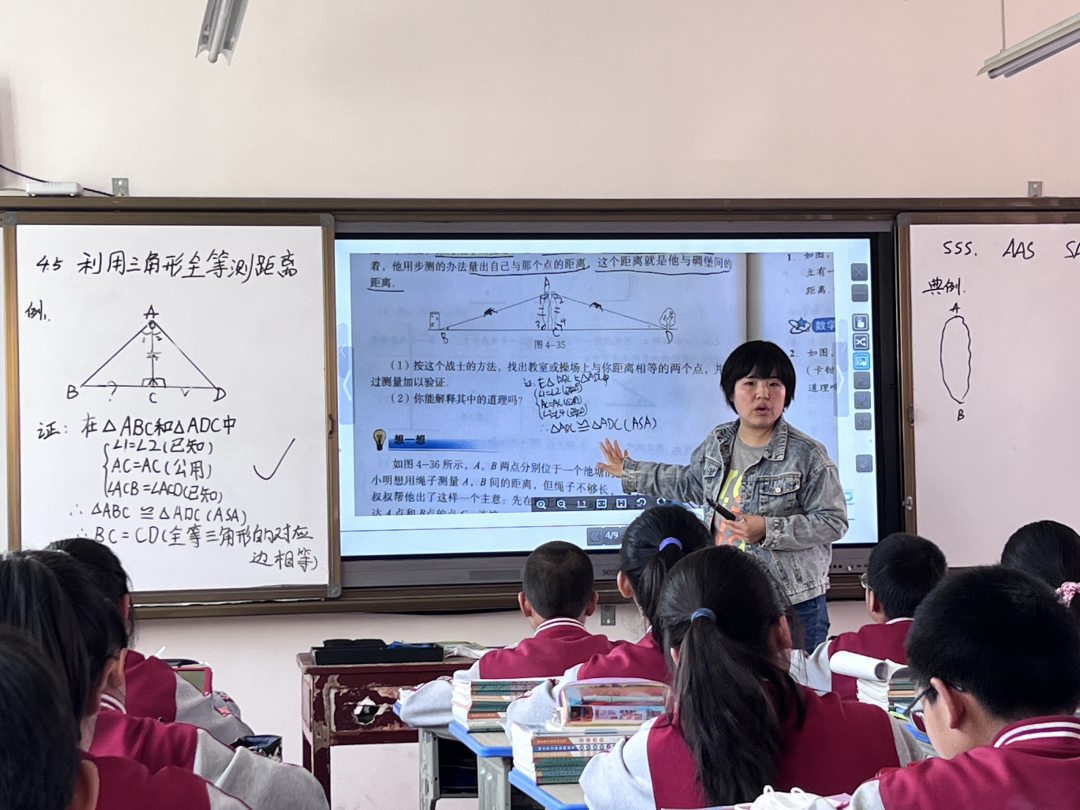 4.5 利用三角形全等测距离
例1.
A
1 2
B ? C √ D
证: 在△ABC和△ADC中
∠1=∠2(已知)
AC=AC(公用)
∠ACB=∠ACD(已知)
∴△ABC≌△ADC(ASA)
∴BC=CD(全等三角形的对应
边相等)
着,他用步测的办法量出自己与那个点的距离,这个距离就是他与碉堡间的
距离.
A
1 2
3 4
B C D
图 4-35
(1)按这个战士的方法,找出教室或操场上与你距离相等的两个点,并
过测量加以验证.
(2)你能解释其中的道理吗?
在△ABC与△ADC中
∠1=∠2(已知)
AC=AC(公用)
∠3=∠4(已知)
∴△ABC≌△ADC(ASA)
想一想
如图4-36所示,A,B两点分别位于一个池塘的
小明想用绳子测量A,B间的距离,但绳子不够长,
叔叔帮他出了这样一个主意:先在
达A点和B点的点C,连接
1:1
4/9
1. 如图,
立有一
距离.
数学
2. 如图,
(卡钳
道理
SSS. AAS SA
典例.
A
B